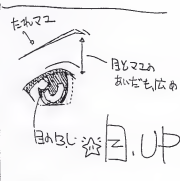 たれマユ
目とマユの
あいだも広め
目のふじ
目.UP